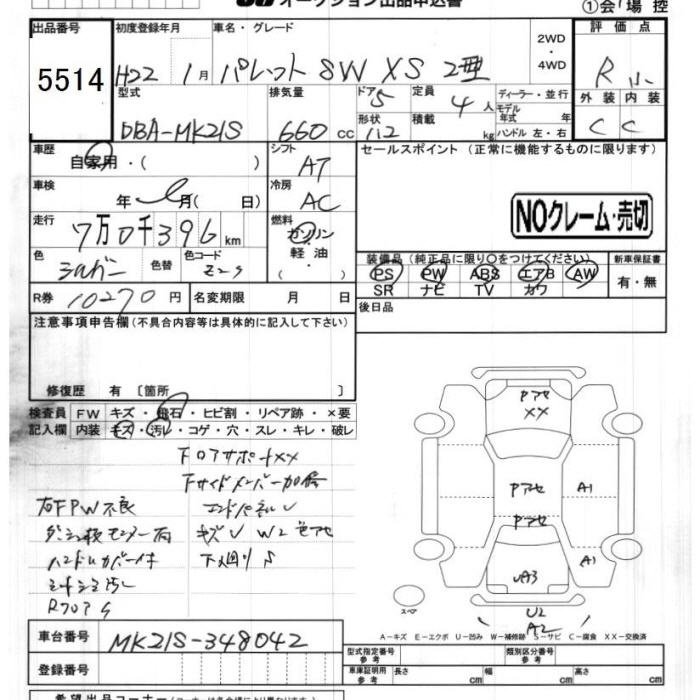 オークション出品申込書
①会場控
出品番号
5514
初度登録年月
H22 1月
車名・グレード
パレット SW XS 2型
2WD
・
4WD
評価点
R
外装 内装
C C
型式
DBA-MK21S
排気量
660 cc
ドア 5
形状
定員 4 人
積載 kg
ディーラー・並行
モデル
年式 年
ハンドル 左・右
車歴
自家用・( )
シフト
AT
セールスポイント (正常に機能するものに限ります)
車検
年 月( 日)
冷房
AC
NOクレーム・売切
走行
7万0千396km
燃料
ガソリン
・
軽油
・
( )
色
シルバー
色替
色コード
Z2S
装備品(純正品に限り○をつけてください)
PS PW ABS エアB AW
SR ナビ TV カワ
新車保証書
有・無
R券 10270円
名変期限 月 日
後日品
注意事項申告欄(不具合内容等は具体的に記入して下さい)
修復歴 有 〔箇所 〕
検査員
記入欄
FW キズ・飛石・ヒビ割・リペア跡・×要
内装 キズ・汚レ・コゲ・穴・スレ・キレ・破レ
FロアサポートXX
Fサイドメンバー
右FPW不良
エンドパネルU
キズU W2 色アセ
ハンドルカバー付
下廻りS
シートシミ汚レ
RフロアS
Pアセ
XX
Pアセ
Pアセ
A1
A1
UA3
U2
A2
スペア
A-キズ E-エクボ U-凹み W-補修跡 S-サビ C-腐食 XX-交換済
車台番号
MK21S-348042
登録番号
型式指定番号
参考
類別区分番号
参考
車庫証明用
参考
長さ cm
幅 cm
高さ cm
希望出品コーナー